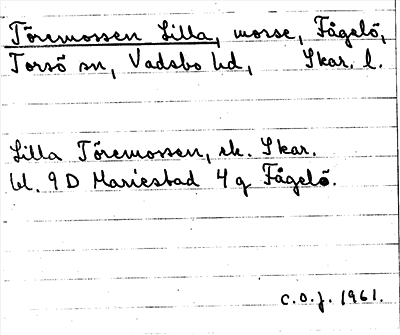 Töremossen Lilla, mosse, Fågelö,
Torsö sn, Vadsbo hd, Skar. l.
Lilla Töremossen, ek. Skar.
bl. 9D Mariestad 4 g Fågelö.
C.O.J. 1961.